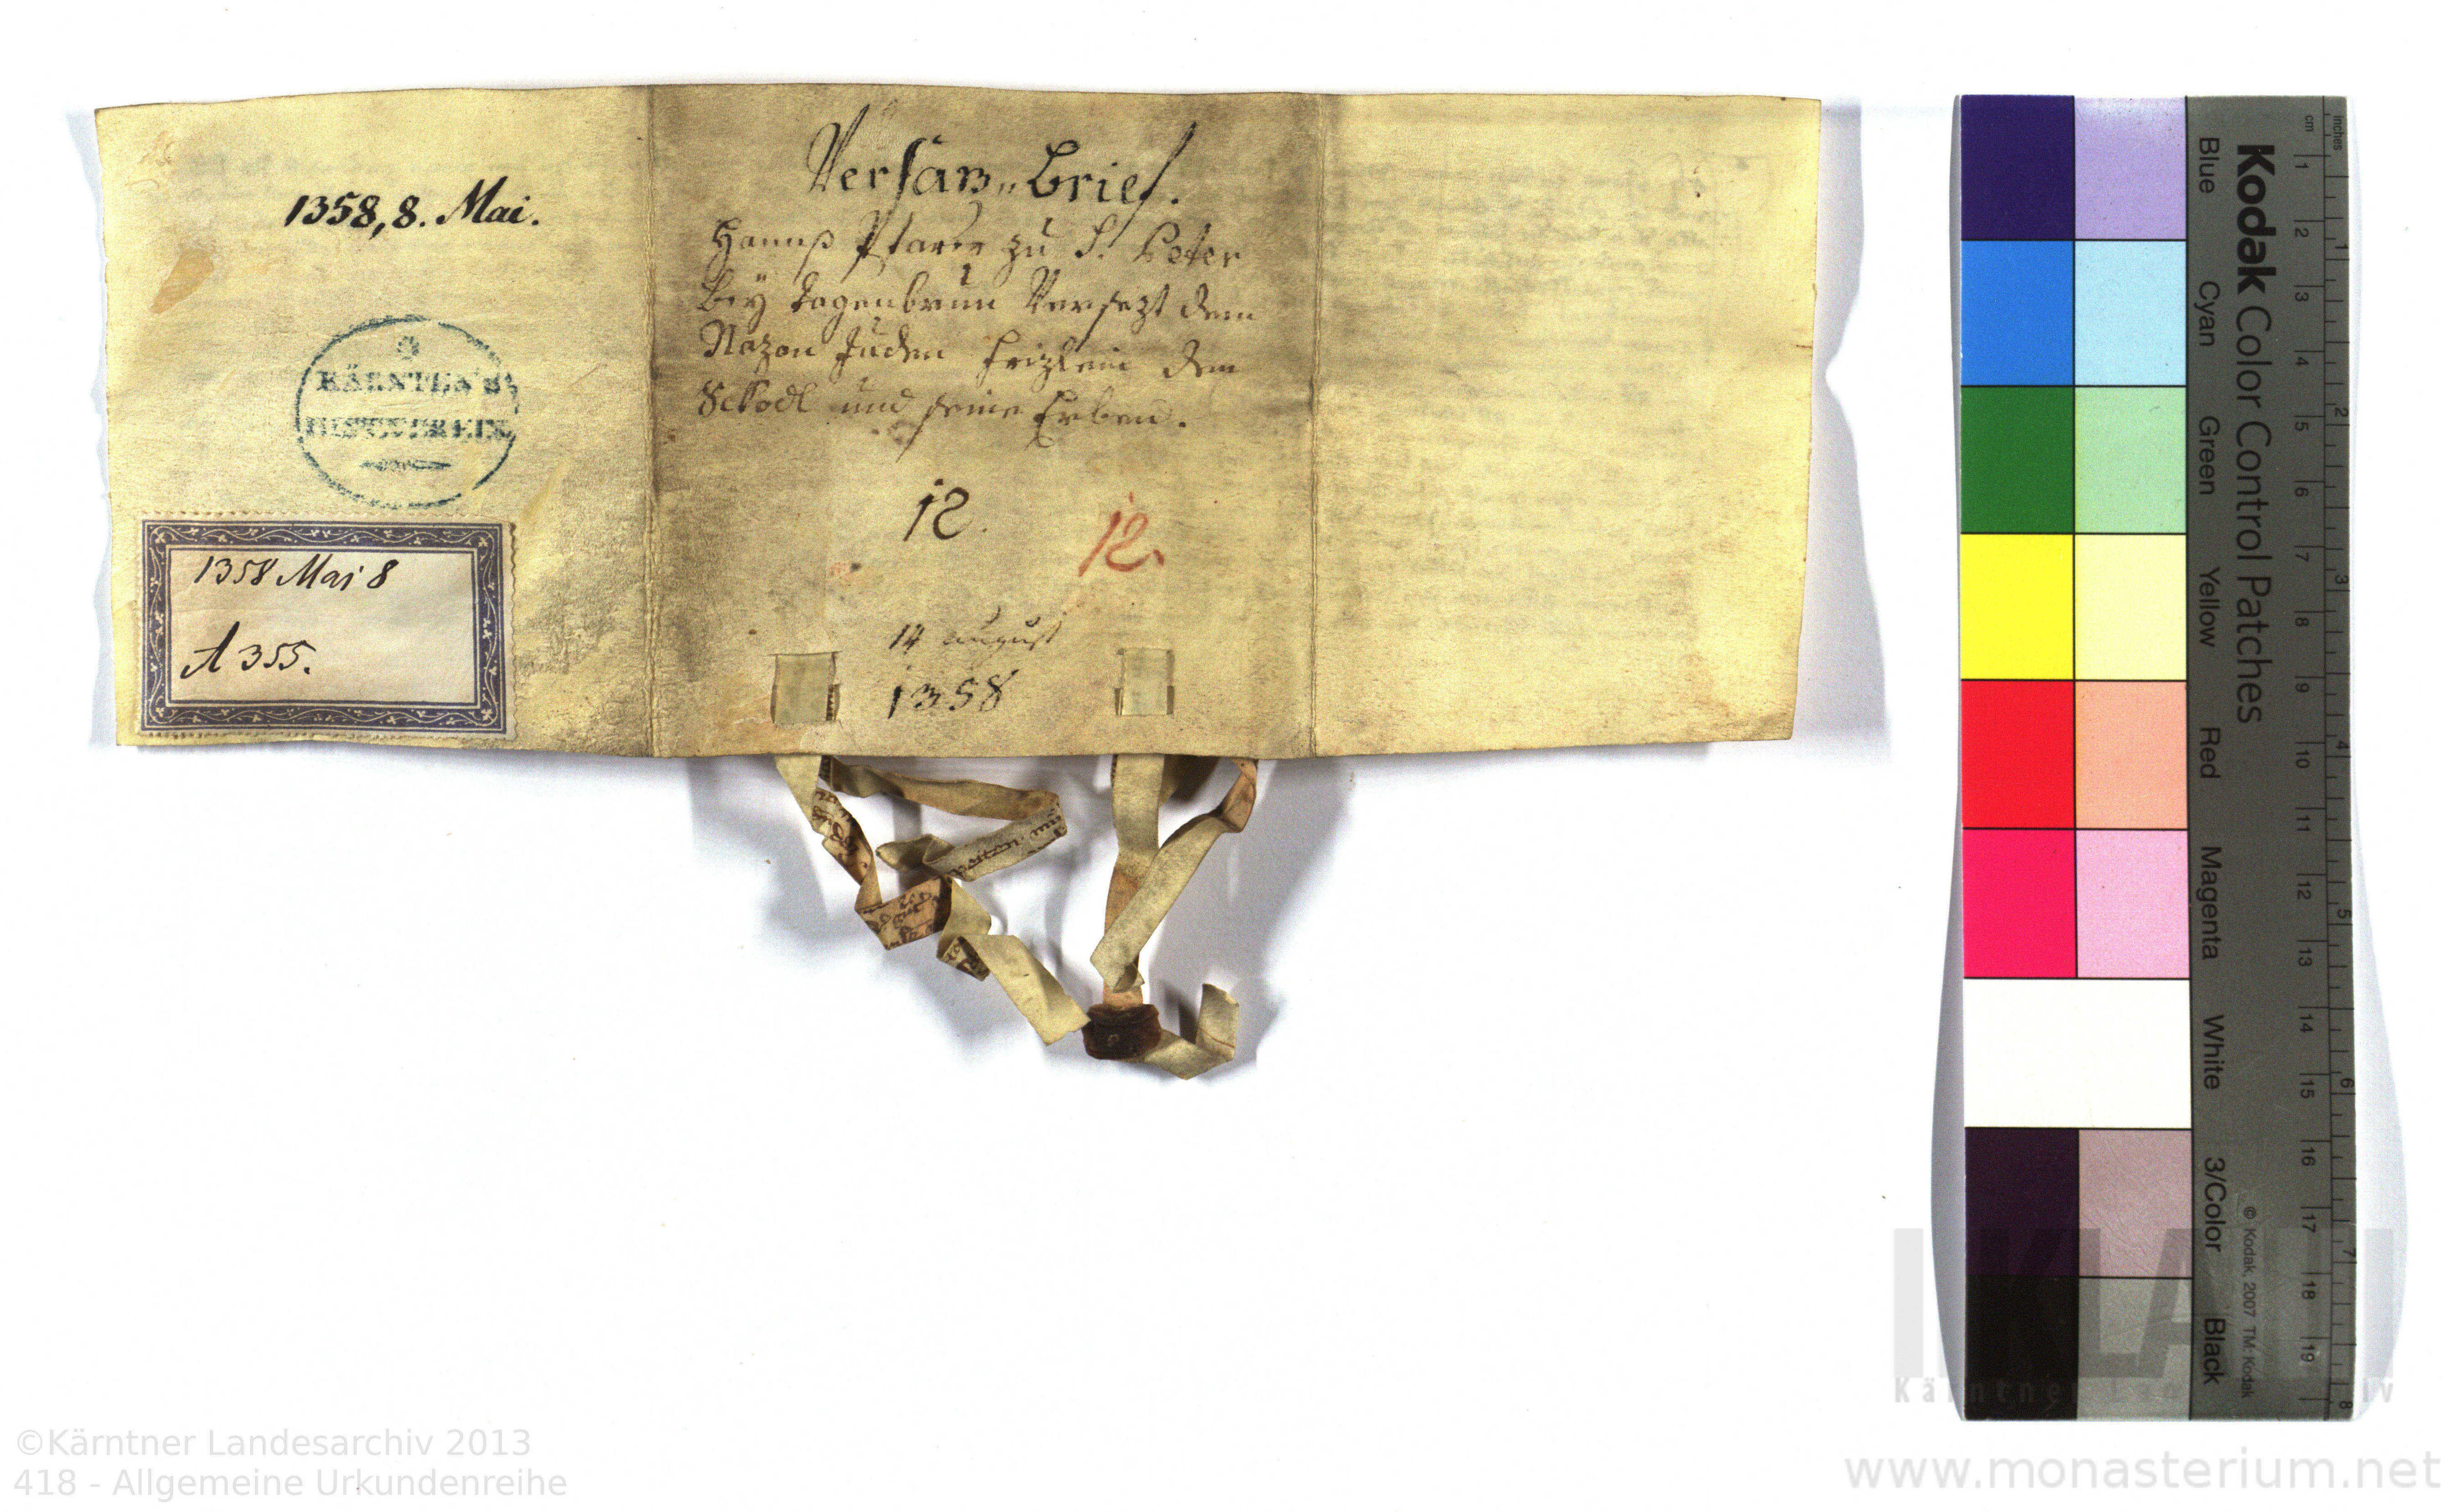 1358, 8. Mai.
KÄRNTEN'S
HIST.VEREIN
1358 Mai 8
A 355.
Versaz„Brief.
Hannß Pfarrer zu S. Peter
bey Tagenbrun Versezt dem
Nazon Juden Frizlein dem
und seine Erben.
12.
12.
14 august
1358
Kodak Color Control Patches
Blue Cyan Green Yellow Red Magenta White 3/Color Black
© Kodak, 2007 TM: Kodak
cm 1 2 3 4 5 6 7 8 9 10 11 12 13 14 15 16 17 18 19
inches 1 2 3 4 5 6 7 8
KLA
Kärntner Landesarchiv
©Kärntner Landesarchiv 2013
418 - Allgemeine Urkundenreihe
www.monasterium.net